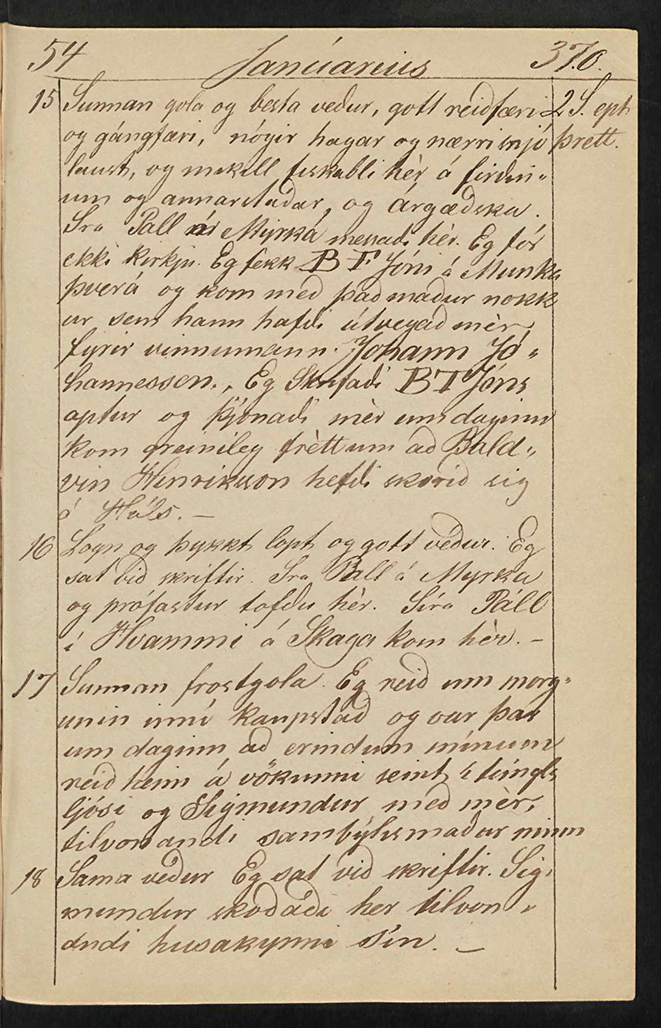 54 Janúarius 370.
15 Sunnan gola og besta veður, gott reiðfæri 2 S. ept
og gángfæri, nógir hagar og nærri snjó þrett.
laust, og mikill fiskabli hér á firðin„
um og annarstaðar, og árgæðska.
Sra Páll úr Myrká messadi hér. Eg fór
ekki kirkju. Eg fékk BF Jóni á Munka
þverá og kom með það maður nokk
ur sem hann hafdi útvegað mér
fyrir vinnumann. Jóhann Jó„
hannessen., Eg Skrifadi BT Jóns
aptur og þjónadi mér um daginn
kom greinileg frétt um að Bald„
vin Henriksson hefdi skorið sig
á Háls. –
16 Logn og þykkt lopt og gott veður. Eg
sat við skriftir. Sra Páll á Myrká
og prófastur tofdu hér. Síra Páll
í Hvammi á Skaga kom hér. –
17 Sunnan frostgola. Eg reið um morg„
unin inní kaupstað og var þar
um daginn að erindum mínum
reið heim á vökunni seint í túngls
ljósi og Sigmundur með mér,
tilvonandi sambýlismaður minn
18 Sama veður Eg sat við skriftir. Sig„
mundur skodadi her tilvon„
andi husakynni sín. –